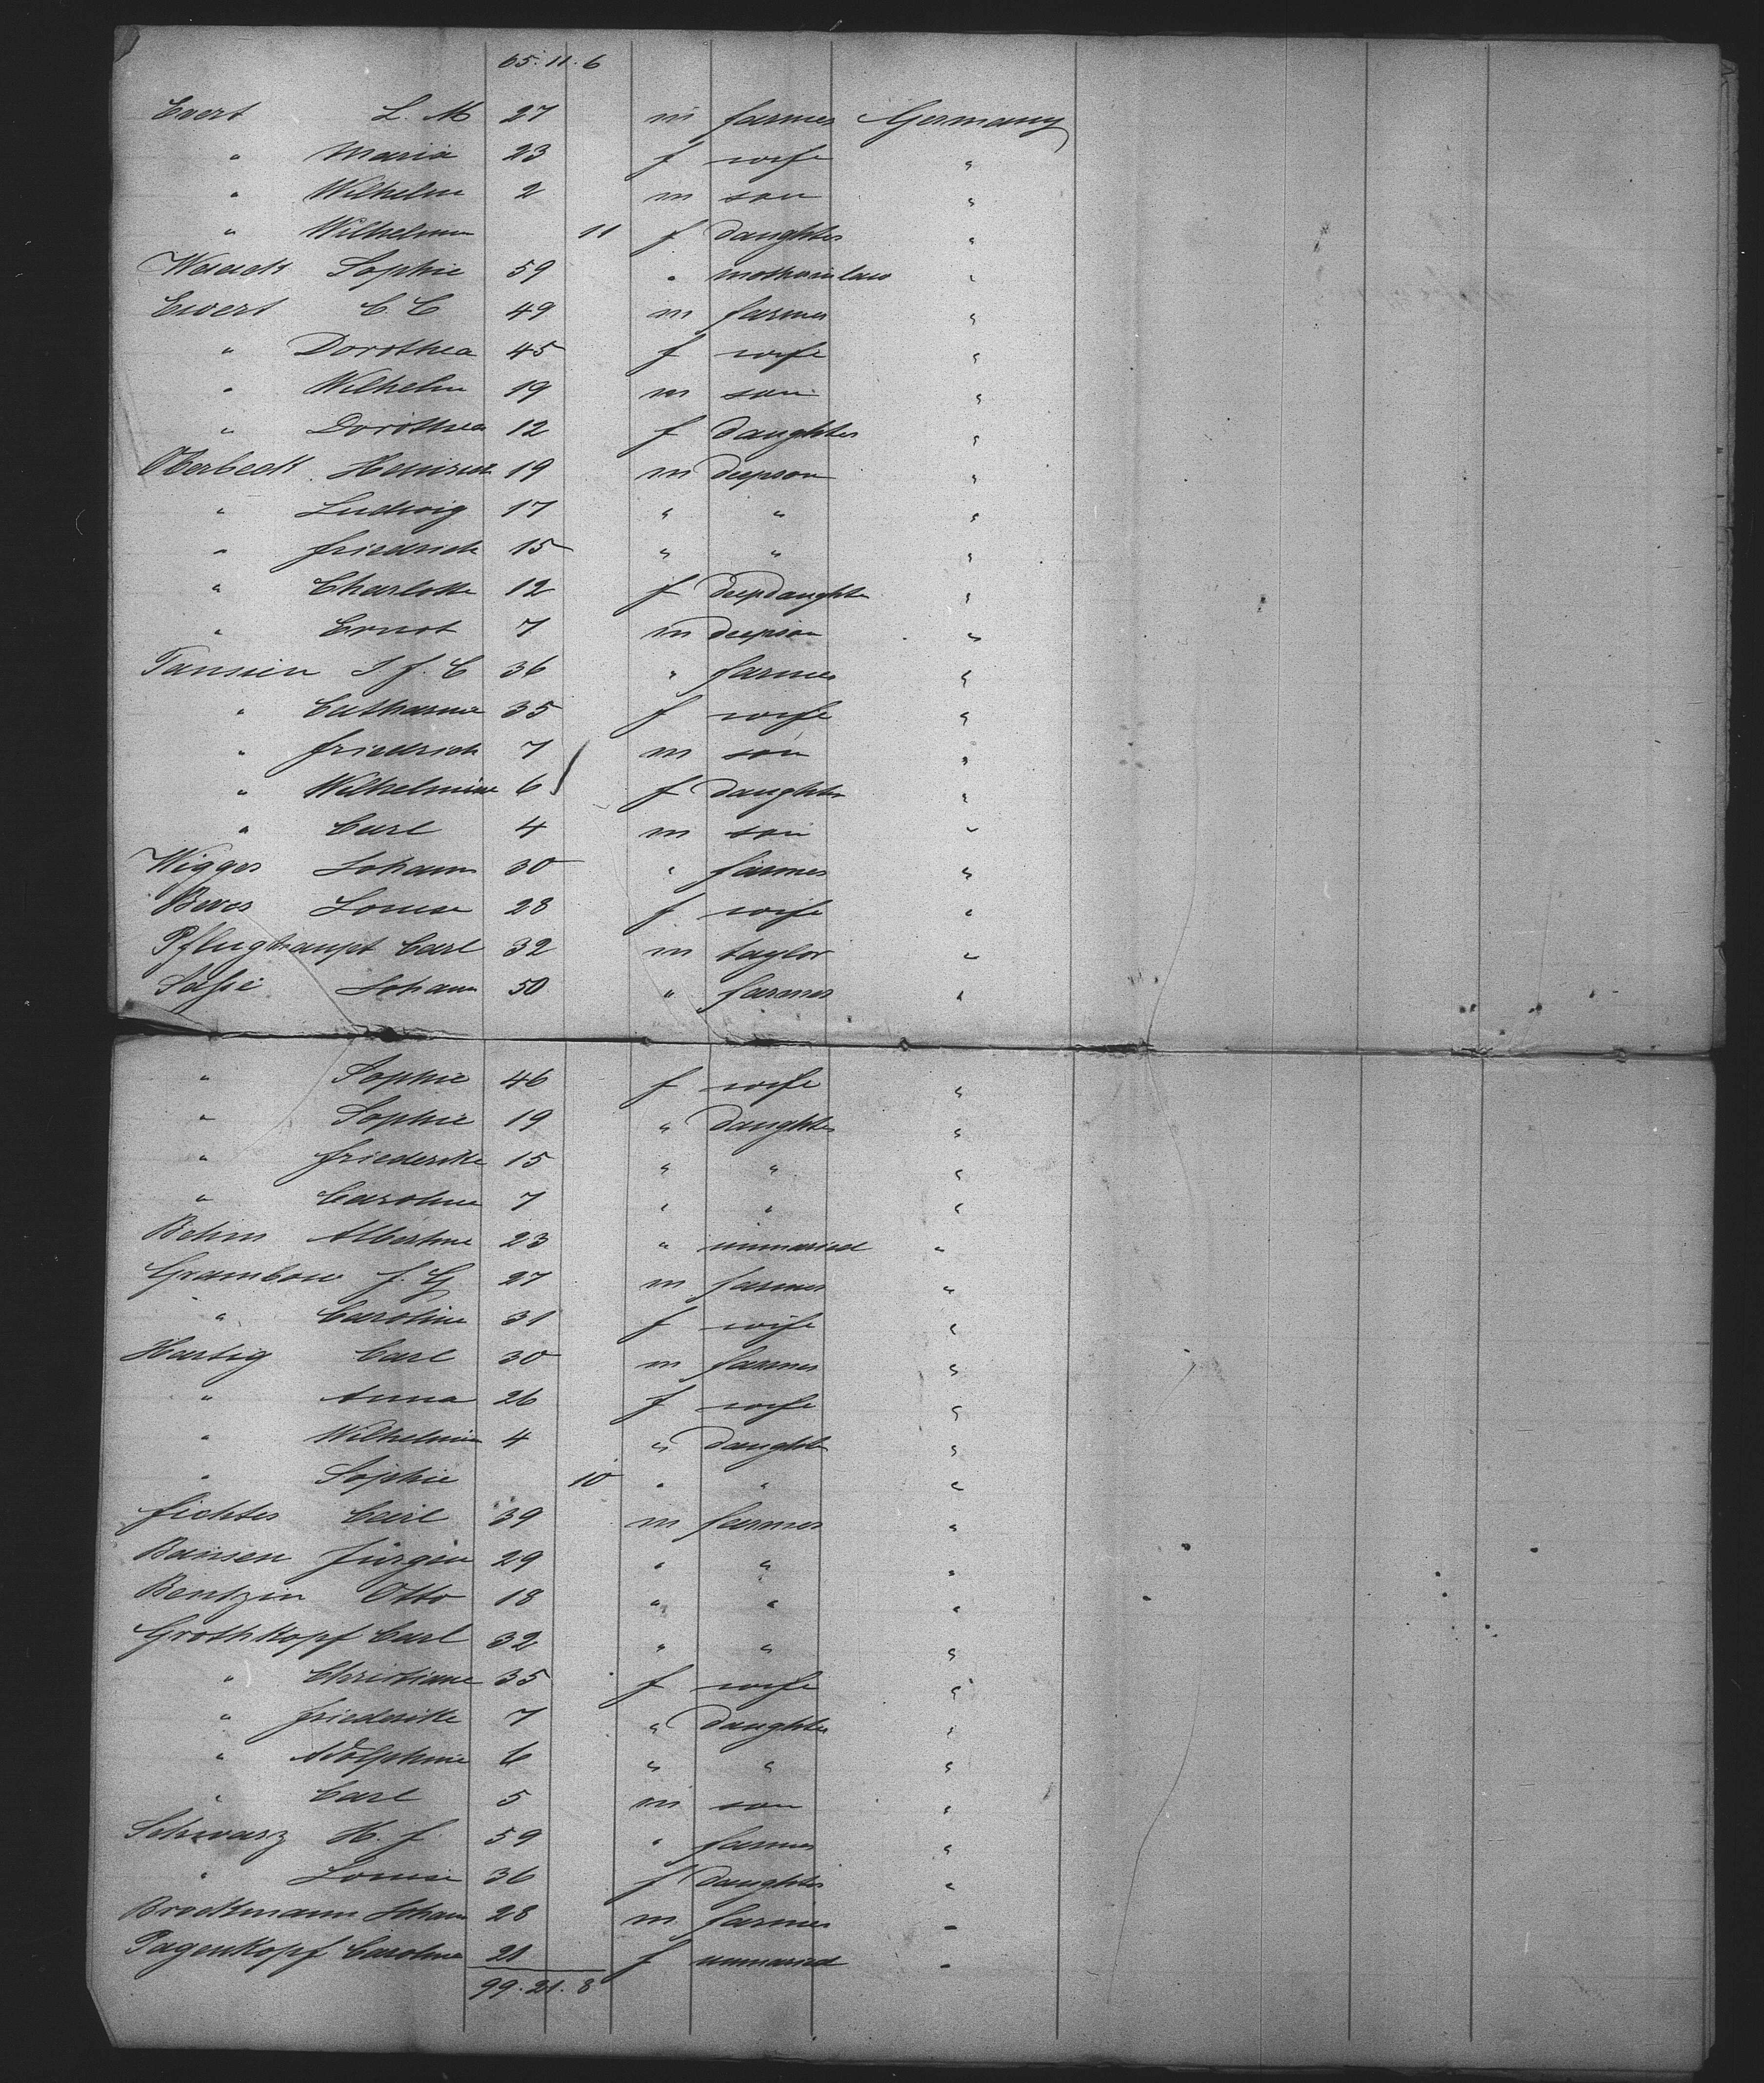 65. 11. 6
Evert L. M 27 m farmer Germany
" Maria 23 f wife "
" Wilhelm 2 m son "
" Wilhelmin 11 f daughter "
Sophie 59 " motherinlaw "
Ewert C C 49 m farmer "
" Dorothea 45 f wife "
" Wilhelm 19 m son "
" Dorothea 12 f daughter "
Oberbeck 19 m deepson "
" Ludwig 17 " " "
" Friedrich 15 " " "
" Charlotte 12 f deepdaughter "
" Ernst 7 m deepson "
J. F. C 36 " farmer "
" Catharine 35 f wife "
" Friedrich 7 m son "
" Wilhelmine 6 f daughter "
" Carl 4 m son "
Wigger Johann 30 " farmer "
Louise 28 f wife "
Pflughaupt Carl 32 m taylor "
Johann 50 " farmer "
" Sophie 46 f wife "
" Sophie 19 " daughter "
" Friederike 15 " " "
" Caroline 7 " " "
Behm Albertine 23 " unmaried "
Grambow J. G 27 m farmer "
" Caroline 31 f wife "
Hartig Carl 30 m farmer "
" Anna 26 f wife "
" Wilhelmin 4 " daughter "
" Sophie 10 " " "
Fichter Carl 39 m farmer "
Bansen Jürgen 29 " " "
Bentzin Otto 18 " " "
Grothkopf Carl 32 " " "
" Christiane 35 f wife "
" Friederike 7 " daughter "
" Adolphine 6 " " "
" Carl 5 m son "
Schwarz H. J. 59 " farmer "
" Louise 36 f daughter "
Brockmann Johann 28 m farmer "
Pagenkopf Caroline 21 f unmaried "
99. 21. 8